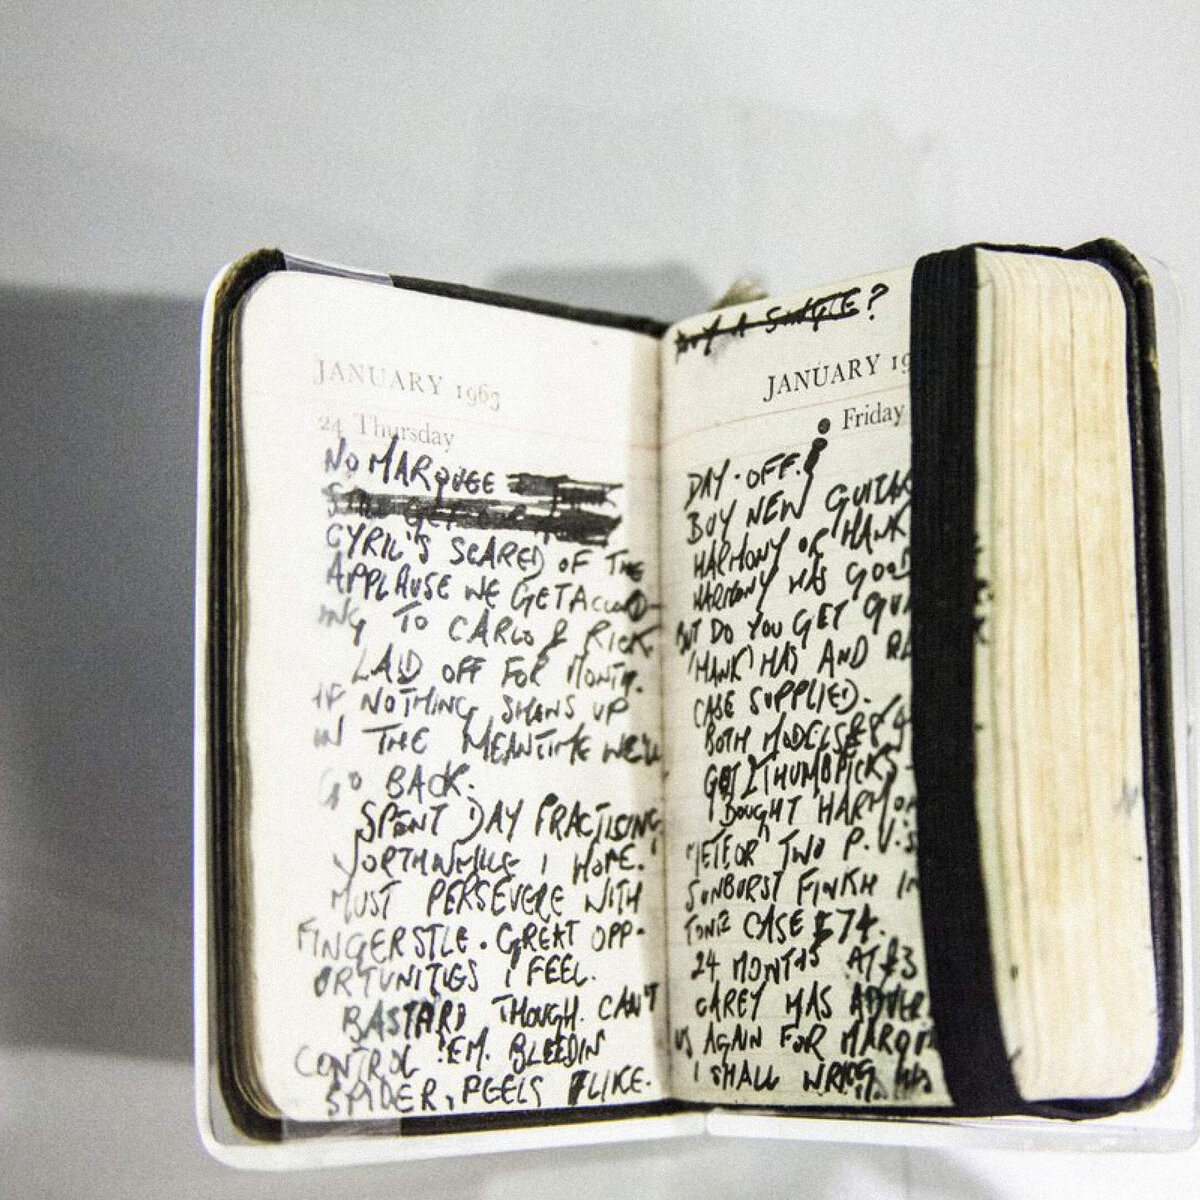 JANUARY 1963
24 Thursday
NO MARQUEE
CYRIL'S SCARED OF THE
APPLAUSE WE GET ACCORD-
ING TO CARLO & RICK.
LAID OFF FOR MONTH.
IF NOTHING SHOWS UP
IN THE MEANTIME WE'LL
GO BACK.
SPENT DAY PRACTISING.
WORTHWHILE I HOPE.
MUST PERSEVERE WITH
FINGERSTLE. GREAT OPP-
ORTUNITIES I FEEL.
BASTARD THOUGH. CAN'T
CONTROL 'EM. BLEEDIN
SPIDER, FEELS LIKE.
BUY A SINGLE?
JANUARY 19
Friday
DAY-OFF.
BUY NEW GUITAR
HARMONY OR HANK
HARMONY HAS GOOD
BUT DO YOU GET
HANK HAS AND
CASE SUPPLIED.
BOTH MODELS
GOT 2 THUMBPICKS
I BOUGHT HARMON
METEOR TWO P.U.'S
SUNBURST FINISH IN
CASE £74.
24 MONTHS AT £3
CAREY HAS ADVER
US AGAIN FOR MARQ
I SHALL